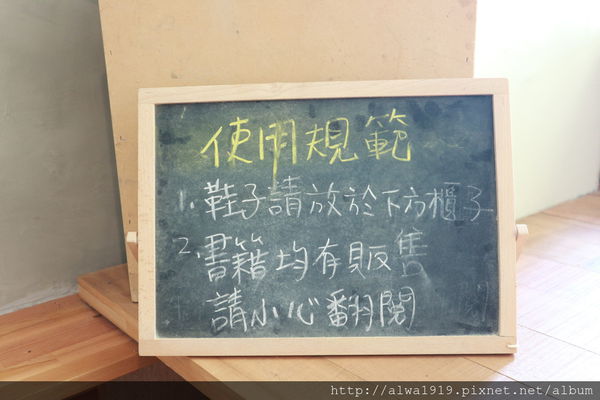 使用規範
1.鞋子請放於下方櫃子
2.書籍均有販售
請小心翻閱
http://alwa1919.pixnet.net/album